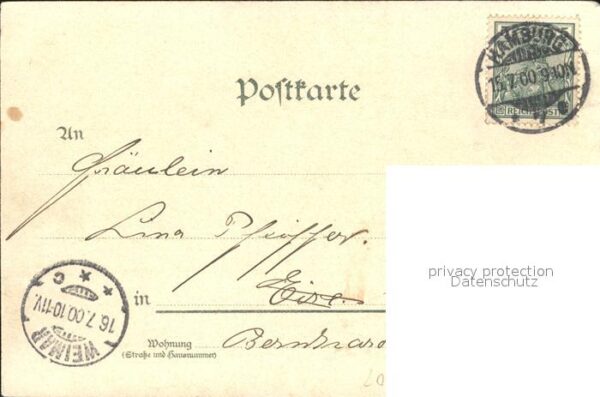 HAMBURG
15.7.00.9-10N.
REICHSPOST
Postkarte
An
Fräulein
Lina Pfeiffer.
in
Wohnung
(Straße und Hausnummer)
WEIMAR
16.7.00.10-11V.
C
privacy protection
Datenschutz